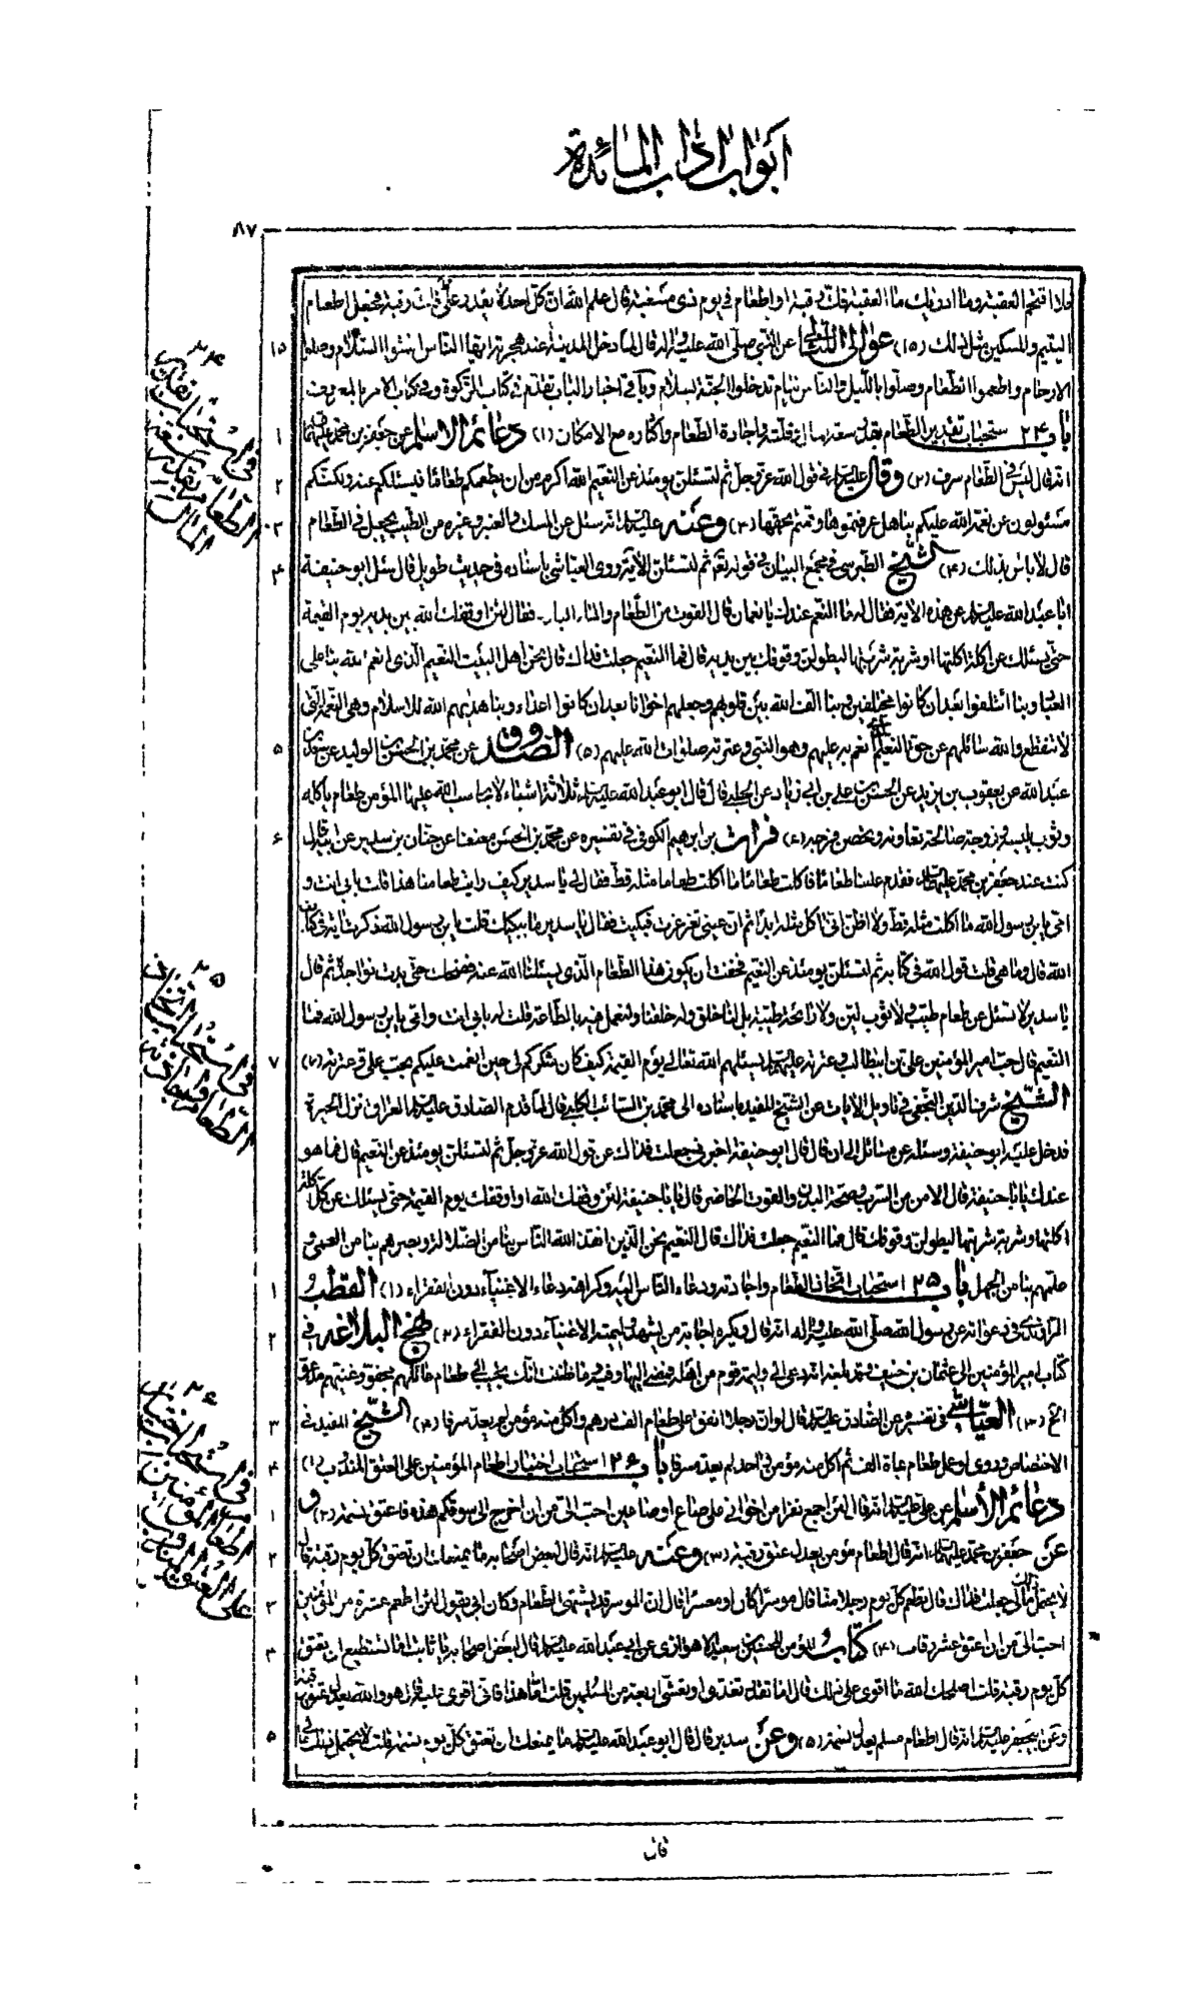 ابواب اداب المائدة
٨٧
فلا اقتحم العقبة وما ادريك ما العقبة فك رقبة او اطعام في يوم ذي مسغبة قال علم الله ان كل احد لا يقدر على فك رقبة فجعل اطعام
اليتيم والمسكين مثل ذلك (١٥) عوالى اللئالى عن النبي صلى الله عليه واله انه قال لما دخل المدينة عند هجرته ايها الناس افشوا السلام وصلوا
الارحام واطعموا الطعام وصلوا بالليل والناس نيام تدخلوا الجنة بسلام وباقي اخبار الباب تقدم في كتاب الزكوة وفي كتاب الامر بالمعروف
باب ٢٤ استحباب تقدير الطعام بقدر سعة المال وقلته واجادة الطعام واكثاره مع الامكان (١) دعائم الاسلام عن جعفر بن محمد عليهما
انه قال ليس في الطعام سرف (٢) وقال عليه السلام في قول الله عز وجل ثم لتسئلن يومئذ عن النعيم الله اكرم من ان يطعمكم طعاما فيسئلكم عنه ولكنكم
مسئولون عن نعمة الله عليكم بنا هل عرفتموها وقمتم بحقها (٣) وعنه عليه السلام انه سئل عن المسك والعنبر وغيره من الطيب يجعل في الطعام
قال لا باس بذلك (٤) الشيخ الطبرسي في مجمع البيان في قوله تعالى ثم لتسئلن الاية وروى العياشي باسناده في حديث طويل قال سئل ابو حنيفة
ابا عبد الله عليه السلام عن هذه الاية فقال له ما النعيم عندك يا نعمان قال القوت من الطعام والماء البارد فقال لئن اوقفك الله بين يديه يوم القيمة
حتى يسئلك عن كل اكلة اكلتها او شربة شربتها ليطولن وقوفك بين يديه قال فما النعيم جعلت فداك قال نحن اهل البيت النعيم الذي انعم الله بنا على
العباد وبنا ائتلفوا بعد ان كانوا مختلفين وبنا الف الله بين قلوبهم وجعلهم اخوانا بعد ان كانوا اعداء وبنا هديهم الله للاسلام وهي النعمة التي
لا تنقطع والله سائلهم عن حق النعيم الذي انعم به عليهم وهو النبي وعترته صلوات الله عليهم (٥) الصدوق عن محمد بن الحسن بن الوليد عن سعد بن
عبد الله عن يعقوب بن يزيد عن الحسن بن علي بن ابي زياد عن الحلبي قال قال ابو عبد الله عليه السلام ثلاثة اشياء لا يحاسب الله عليها المؤمن طعام ياكله
وثوب يلبسه وزوجة صالحة تعاونه ويحصن فرجه (٦) فرات بن ابرهيم الكوفي في تفسيره عن محمد بن الحسن معنعنا عن حنان بن سدير عن ابيه قال
كنت عند جعفر بن محمد عليهما السلام فقدم علينا طعاما فاكلت طعاما ما اكلت طعاما مثله قط فقال لي يا سدير كيف رايت طعامنا هذا قلت بابي انت و
امي يابن رسول الله ما اكلت مثله قط ولا اظن اني اكل مثله ابدا ثم ان عيني تغرغرت فبكيت فقال يا سدير ما يبكيك قلت يابن رسول الله ذكرت اية في كتاب
الله قال وما هي قلت قول الله في كتابه ثم لتسئلن يومئذ عن النعيم فخفت ان يكون هذا الطعام الذي يسئلنا الله عنه فضحك حتى بدت نواجذه ثم قال
يا سدير لا تسئل عن طعام طيب ولا ثوب لين ولا رائحة طيبة بل لنا خلق وله خلقنا ولنعمل فيه بالطاعة قلت له بابي انت وامي يابن رسول الله فما
النعيم قال حب امير المؤمنين علي بن ابيطالب وعترته عليهم السلام يسئلهم الله تعالى يوم القيمة كيف كان شكركم لي حين انعمت عليكم بحب علي وعترته (٧)
الشيخ شرف الدين النجفي في تاويل الايات عن الشيخ المفيد باسناده الى محمد بن السائب الكلبي قال لما قدم الصادق عليه السلام العراق نزل الحيرة
فدخل عليه ابو حنيفة وسئله عن مسائل الى ان قال قال ابو حنيفة اخبرني جعلت فداك عن قول الله عز وجل ثم لتسئلن يومئذ عن النعيم قال فما هو
عندك يا ابا حنيفة قال الامن من السرب وصحة البدن والقوت الحاضر قال يا ابا حنيفة لئن وقفك الله او اوقفك يوم القيمة حتى يسئلك عن كل اكلة
اكلتها وشربة شربتها ليطولن وقوفك قال فما النعيم جعلت فداك قال النعيم نحن الذين انقذ الله الناس بنا من الضلالة وبصرهم بنا من العمى و
علمهم بنا من الجهل باب ٢٥ استحباب اتخاذ الطعام واجادته ودعاء الناس اليه وكراهة دعاء الاغنياء دون الفقراء (١) القطب
الراوندي في دعواته عن رسول الله صلى الله عليه واله انه قال ويكره اجابة من يشهد وليمته الاغنياء دون الفقراء (٢) نهج البلاغة في
كتاب امير المؤمنين الى عثمان بن حنيف وقد بلغه انه دعي الى وليمة قوم من اهلها فمضى اليها وفيه وما ظننت انك تجيب الى طعام قوم عائلهم مجفو وغنيهم مدعو
الخ (٣) العياشي في تفسيره عن الصادق عليه السلام قال لو ان رجلا انفق على طعام الف درهم واكل منه مؤمن لم يعد سرفا (٤) الشيخ المفيد في
الاختصاص وروي لو عمل طعام بماة الف ثم اكل منه مؤمن واحد لم يعد سرفا باب ٢٦ استحباب اختيار اطعام المؤمنين على العتق المندوب (١)
دعائم الاسلام عن علي عليه السلام انه قال لئن اجمع نفرا من اخواني على صاع او صاعين احب الي من ان اخرج الى سوقكم هذه فاعتق نسمة (٢) و
عن جعفر بن محمد عليهما السلام انه قال اطعام مؤمن يعدل عتق رقبة (٣) وعنه عليه السلام انه قال لبعض اصحابه ما يمنعك ان تعتق كل يوم رقبة قال
لا يحتمل مالي ذلك جعلت فداك قال تطعم كل يوم رجلا منا قال موسرا كان او معسرا قال ان الموسر قد يشتهي الطعام وكان ابي يقول لئن اطعم عشرة من المؤمنين
احب الي من ان اعتق عشر رقاب (٤) كتاب المؤمن للحسين بن سعيد الاهوازي عن ابي عبد الله عليه السلام قال لبعض اصحابه يا ثابت اما تستطيع ان تعتق
كل يوم رقبة قلت اصلحك الله ما اقوى على ذلك قال اما تقدر تغدي او تعشي اربعة من المسلمين قلت اما هذا فاني اقوى عليه قال هو والله يعدل عتق رقبة
وعن ابي جعفر عليه السلام انه قال اطعام مسلم يعدل نسمة (٥) وعن سدير قال قال ابو عبد الله عليه السلام ما يمنعك ان تعتق كل يوم نسمة قلت لا يحتمل ذلك مالي
قال
٢٤
في استحباب تقدير الطعام بقدر سعة المال
٢٥
في استحباب اتخاذ الطعام واجادته
٢٦
في استحباب اختيار اطعام المؤمنين على العتق المندوب